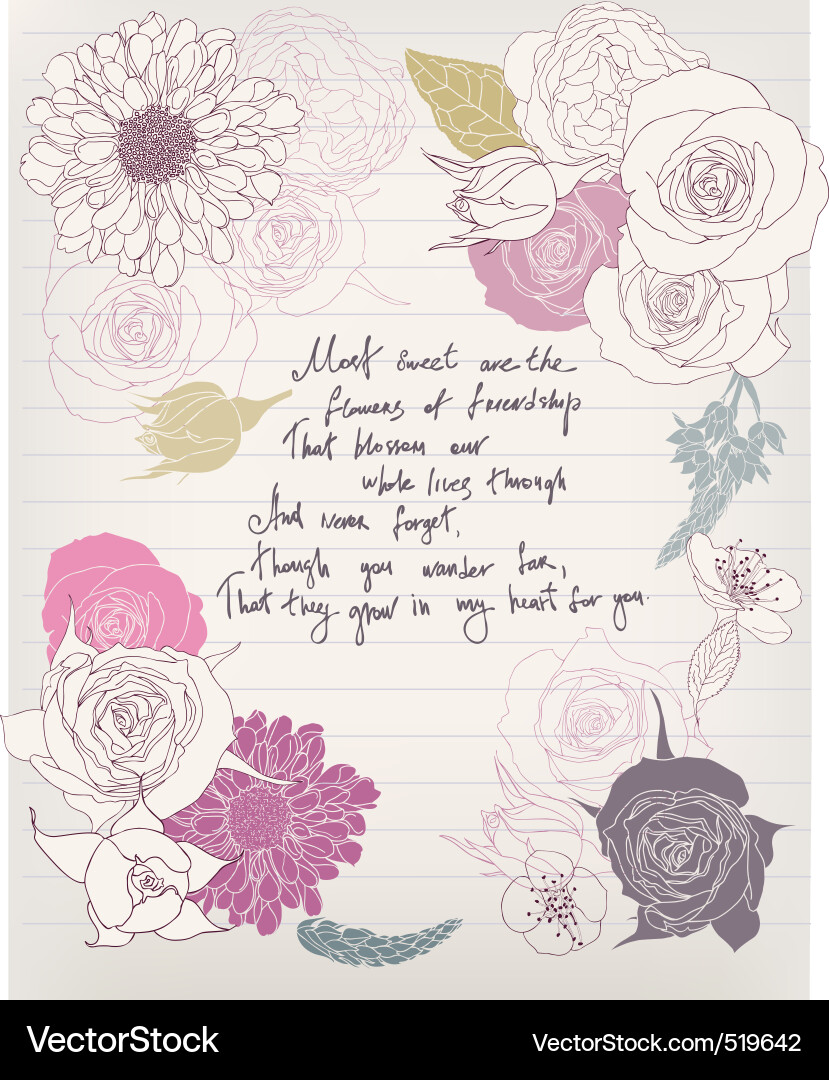 Most sweet are the
flowers of friendship
That blossom our
whole lives through
And never forget,
though you wander far,
That they grow in my heart for you.
VectorStock®
VectorStock.com/519642